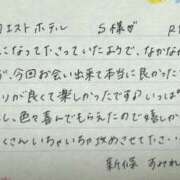 エストホテル S様♡
になって下さっていたようで、なかなか
が、今回お会い出来て本当に良かった
りが良くて楽しかったです♪いっぱ
し、色々喜んでもらえたので嬉しか
くさんいちゃいちゃ攻めさせて
新保 すみれ